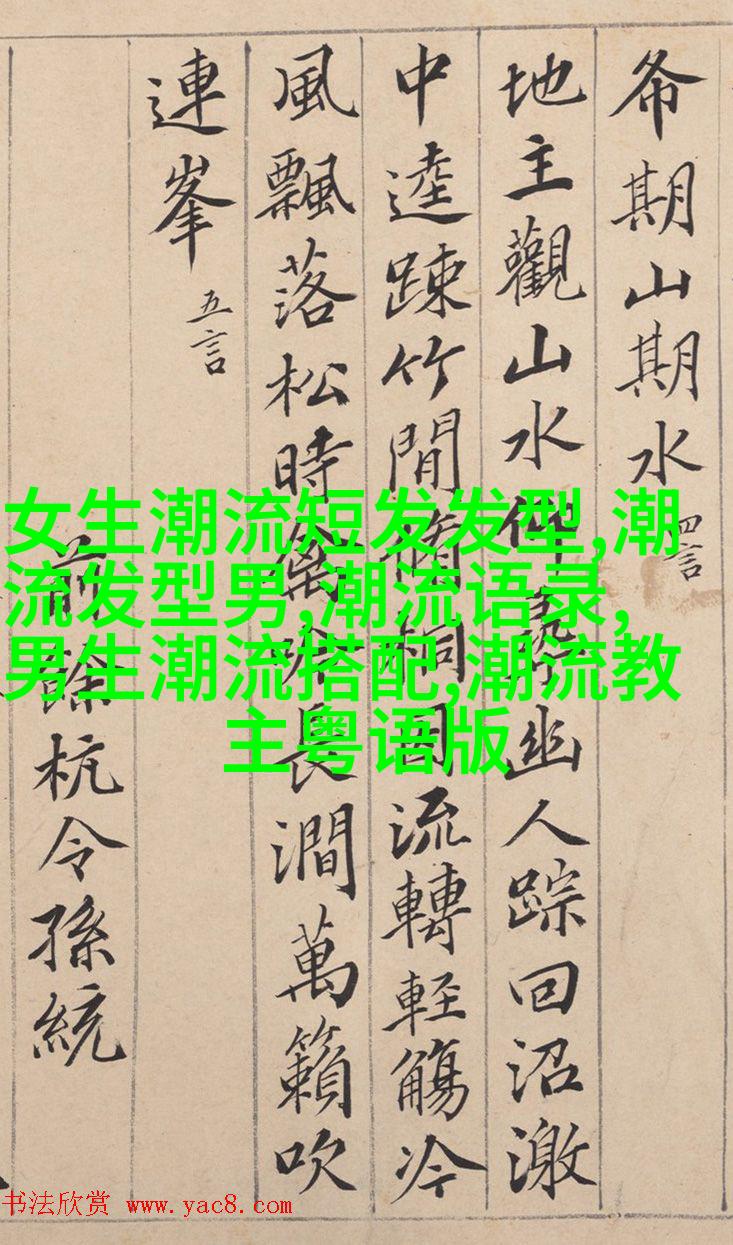 希期山期水 四言
地主觀山水仰尋幽人踪回沼激
中逵踈竹間脩桐因流轉輕觴冷
風飄落松時禽吟長澗萬籟吹
連峯 五言
前餘杭令孫統
女生潮流短发发型,潮
流发型男,潮流语录,
男生潮流搭配,潮流教
主粤语版
书法欣赏 www.yac8.com